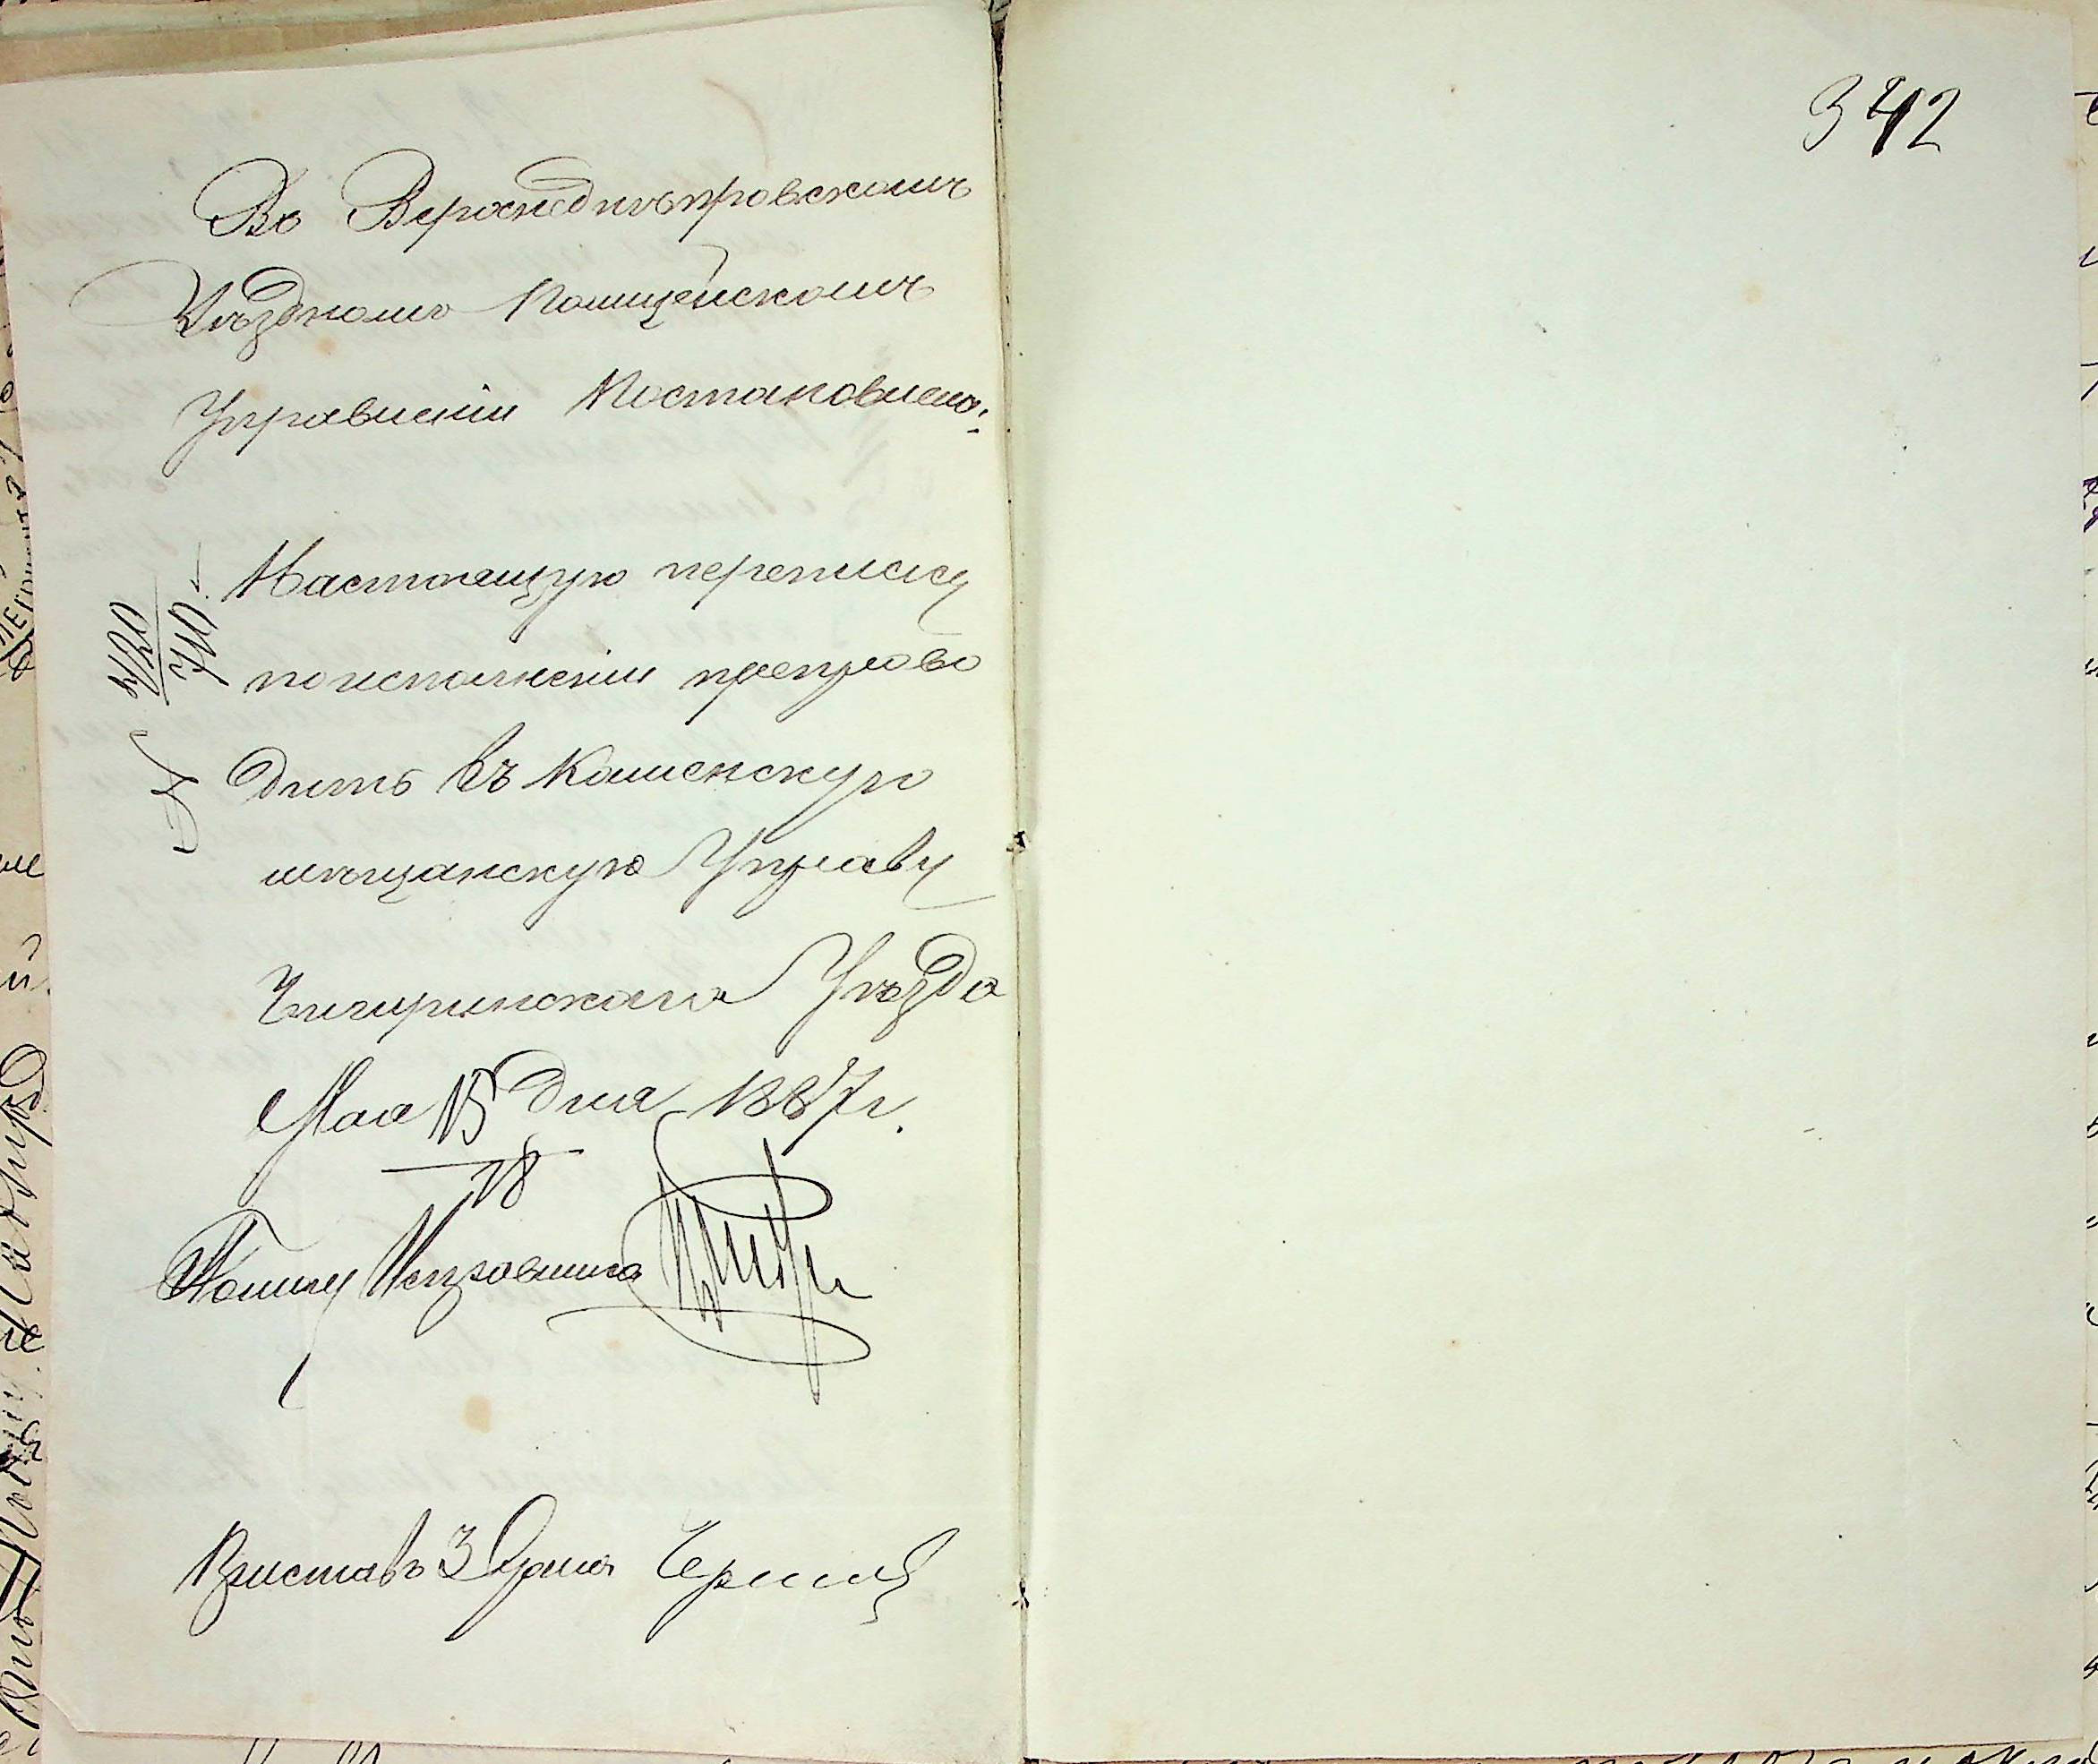 Въ Верхнеднѣпровскомъ
Уѣздномъ Полицейскомъ
Управленіи Постановлено:
Настоящую переписку
по исполненіи препрово
дить въ Каменскую
мѣщанскую Управу
Чигиринскаго Уѣзда
Мая 15 дня 1887 г.
18
Помощ Исправника
Приставъ 3 Стана
№ 3420
740
342